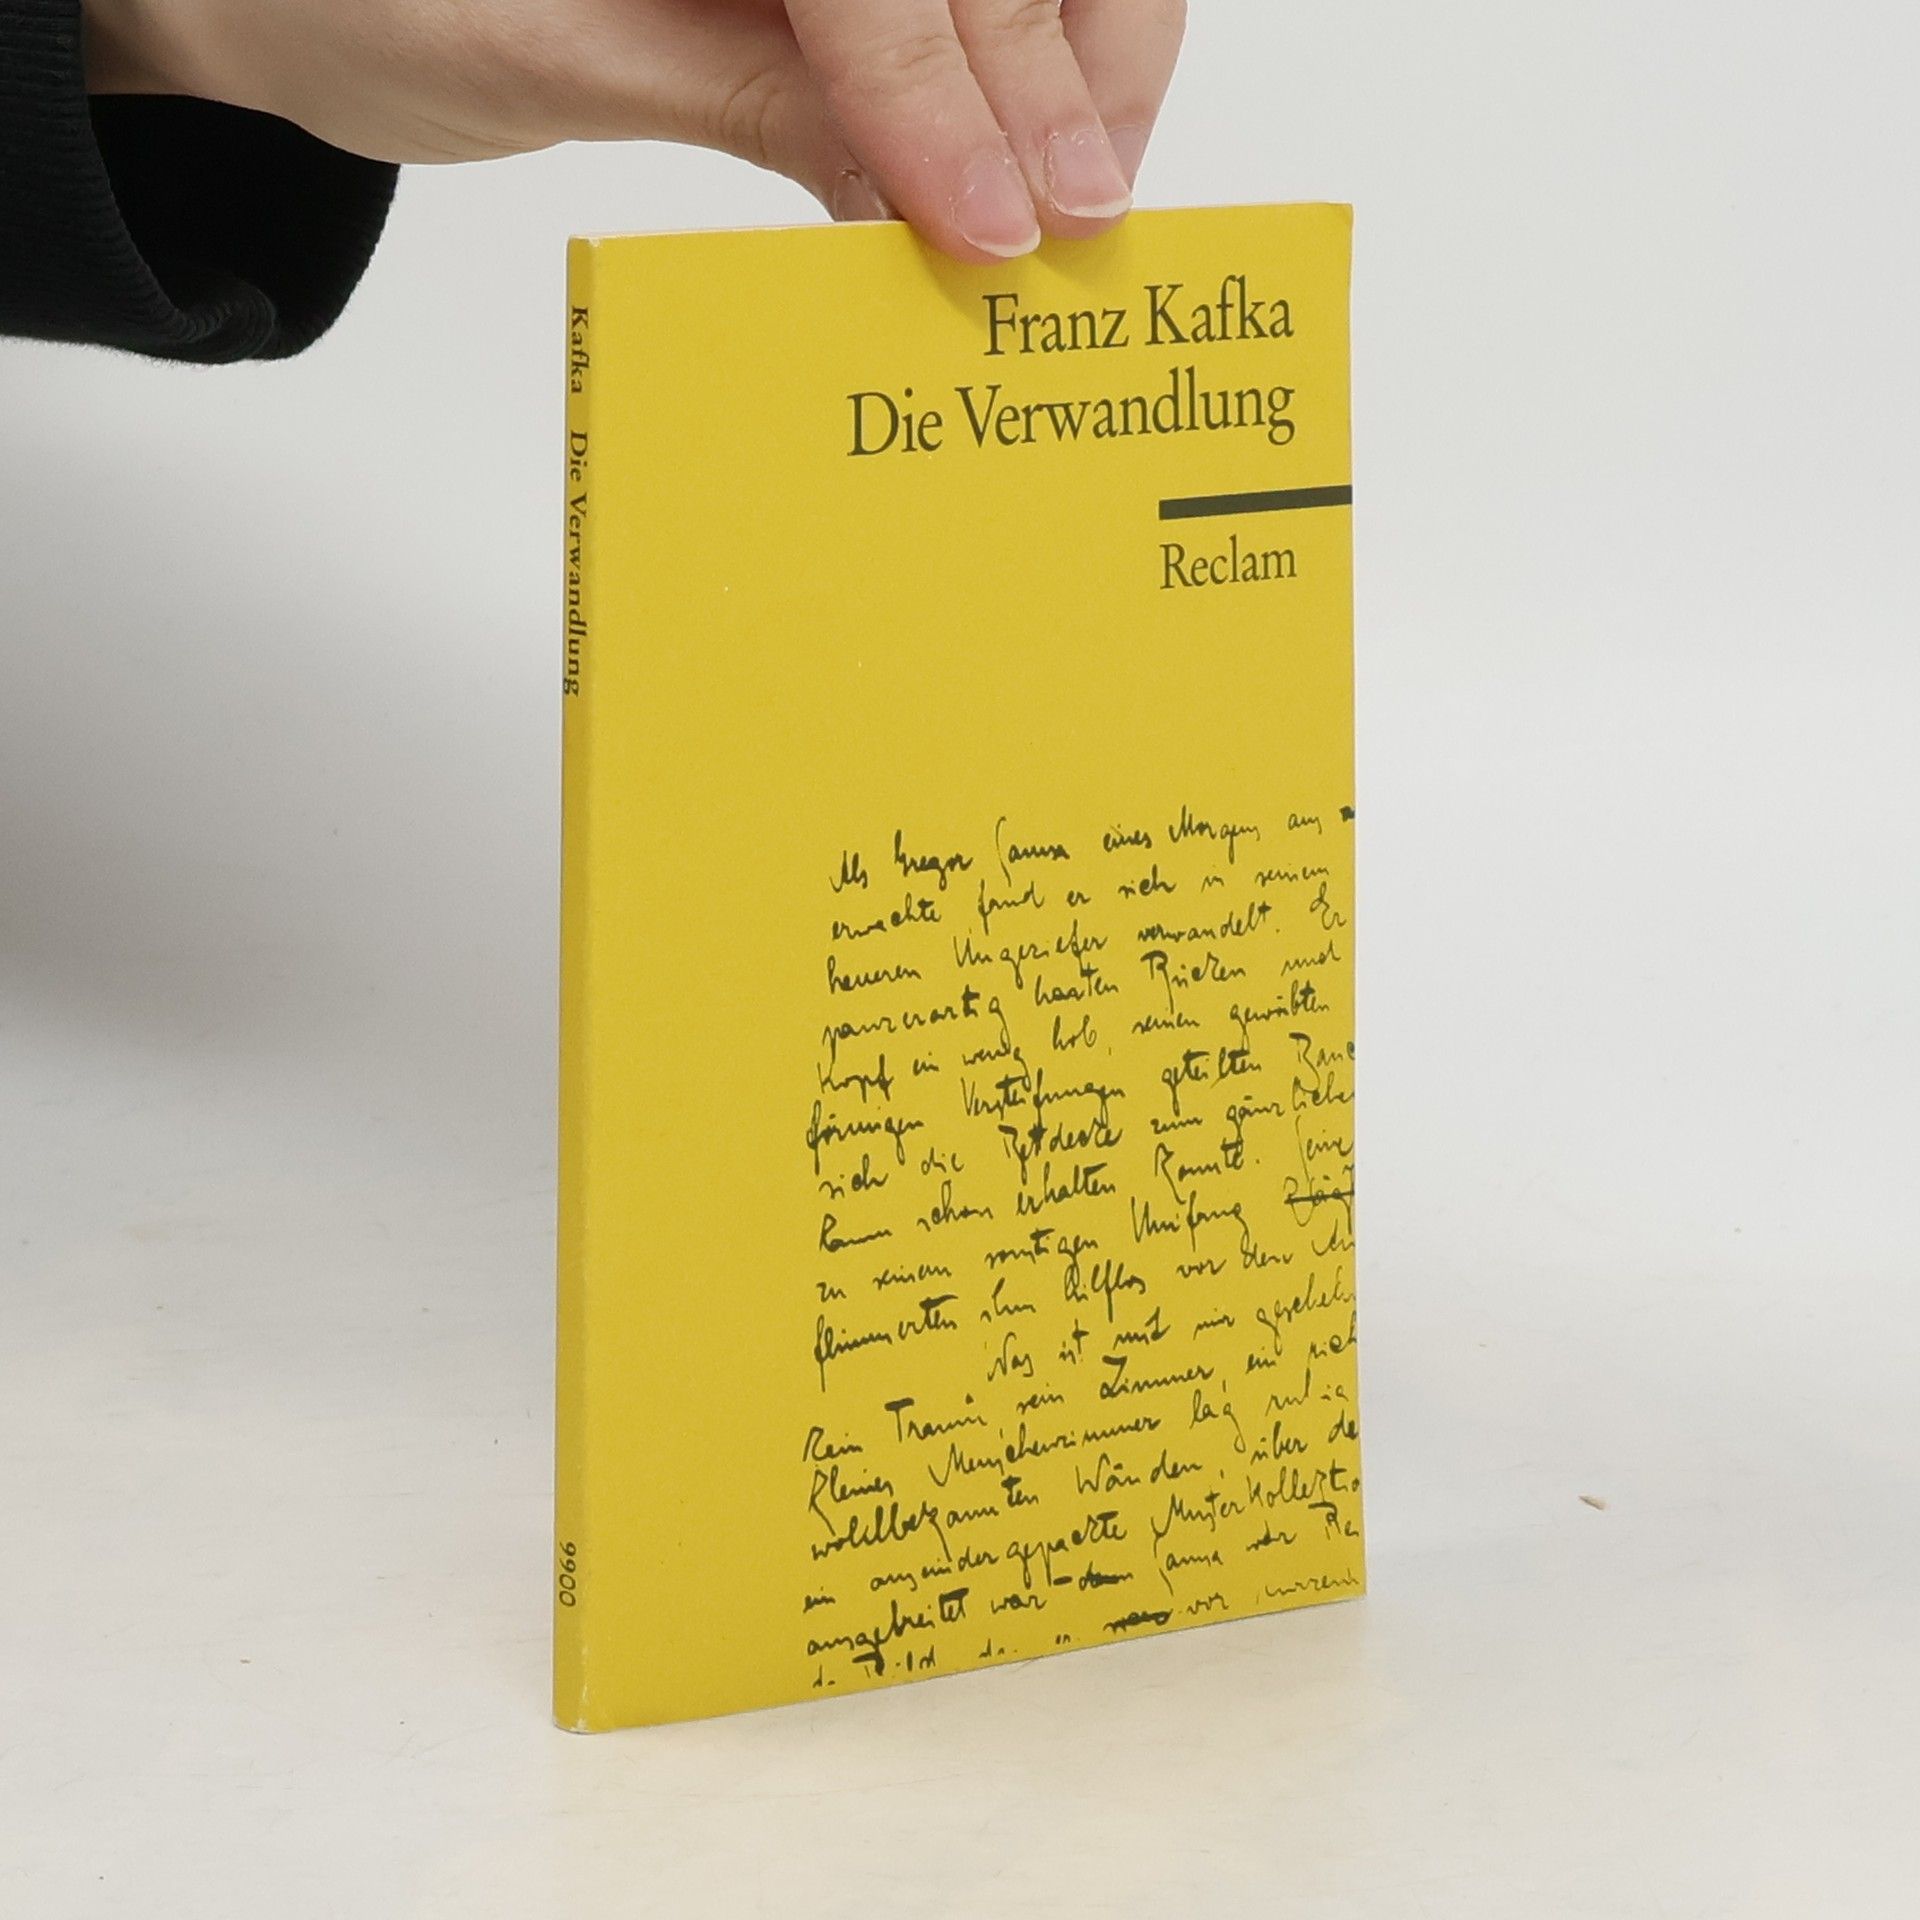 Franz Kafka
Die Verwandlung
Reclam
Kafka Die Verwandlung
9900
Als Gregor Samsa eines Morgens aus
erwachte fand er sich in seinem
heueren Ungeziefer verwandelt. Er
panzerartig harten Rücken und
Kopf ein wenig hob, seinen gewölbten
förmigen Versteifungen geteilten Bauc
sich die Bettdecke zum gänzlichen
kaum schon erhalten konnte. Seine
zu seinem sonstigen Umfang
flimmerten ihm hilflos vor den Au
Was ist mit mir geschehen
Kein Traum, sein Zimmer, ein rich
kleines Menschenzimmer lag ruhig
wohlbekannten Wänden, über de
ein auseinandergepackte Musterkollektio
ausgebreitet war – Samsa war Rei
vor